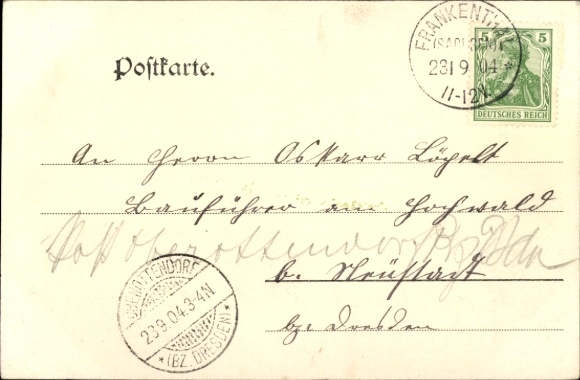 Postkarte.
FRANKENTHAL
(SACHSEN)
23 9 04
11-12V.
5 5
DEUTSCHES REICH
An Herrn Oskar Löpelt
Bauführer am Hochwald
Post Oberottendorf Bz Ddn
b. Neustadt
bz. Dresden
OBEROTTENDORF
23.9.04.3-4N
*(BZ. DRESDEN)*